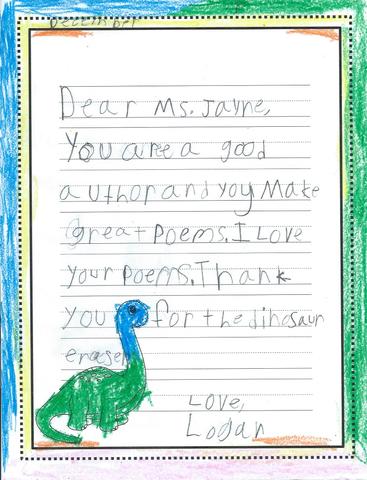 December
Dear Ms. Jayne,
You are a good
author and you Make
great Poems. I Love
your Poems. Thank
you for the dinosaur
eraser
Love,
Logan